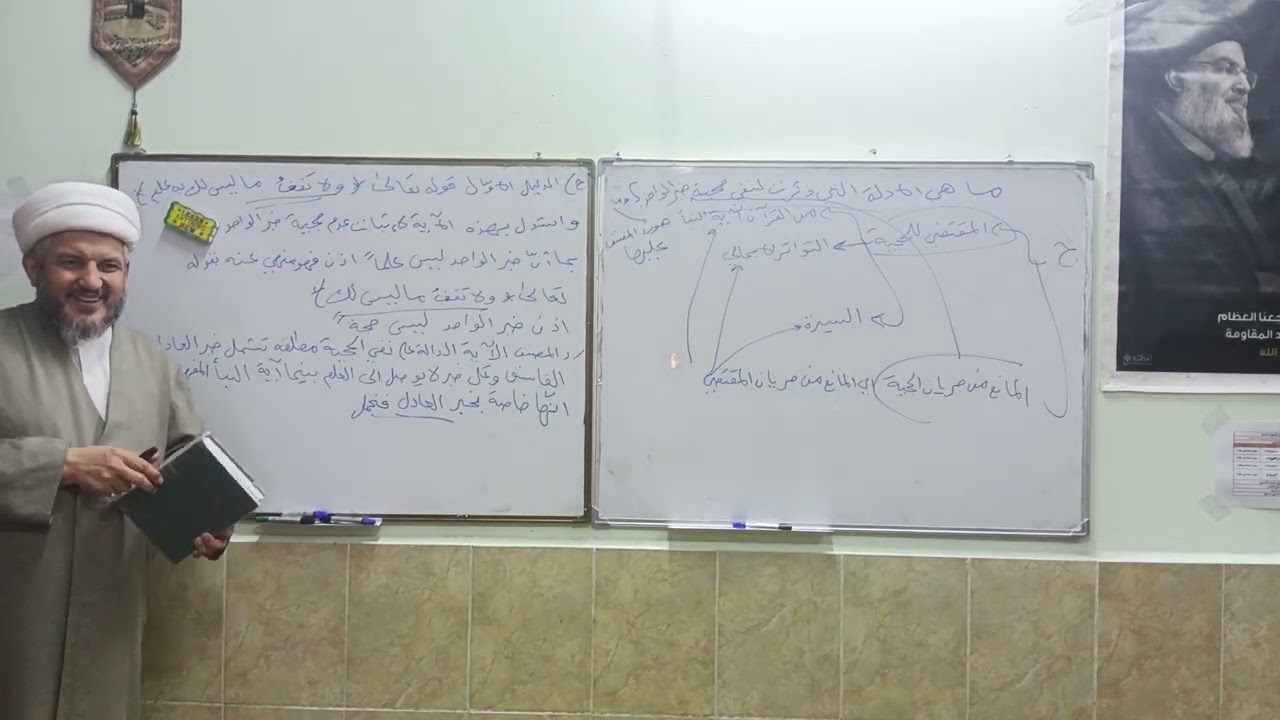 ما هي الادلة التي ذكرت لنفي حجية خبر الواحد؟ وما
هو رد المصنف
عليها
من القرآن آية النبأ
ج
المقتضي للحجية
التواتر الاجمالي
السيرة
المانع من سريان الحجية
اي المانع من سريان المقتضي
ج) الدليل الاول قوله تعالى ولا تقفُ ما ليس لك به علم
واستدل بهذه الآية لاثبات عدم حجية خبر الواحد
بما أنّ خبر الواحد ليس علماً اذن فهو منهي عنه بقوله
تعالى ولا تقفُ ما ليس لك
اذن خبر الواحد ليس حجة
رد المصنف الآية الدالة على نفي الحجية مطلقة تشمل خبر العادل
الفاسق وكل خبر لا يوصل الى العلم بينما آية النبأ
انّها خاصة بخبر العادل
جعنا العظام
د المقاومة
الله